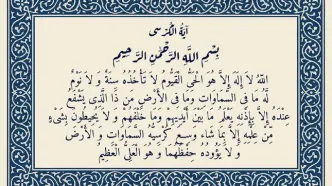 آیَةُ الْکُرْسی
بِسْمِ اللَّهِ الرَّحْمٰنِ الرَّحیمِ
اللَّهُ لَا إِلَهَ إِلَّا هُوَ الْحَيُّ الْقَيُّومُ لَا تَأْخُذُهُ سِنَةٌ وَ لَا نَوْمٌ
لَهُ مَا فِي السَّمَاوَاتِ وَمَا فِي الْأَرْضِ مَن ذَا الَّذِي يَشْفَعُ
عِنْدَهُ إِلَّا بِإِذْنِهِ يَعْلَمُ مَا بَيْنَ أَيْدِيهِمْ وَمَا خَلْفَهُمْ وَ لَا يُحِيطُونَ بِشَيْءٍ
مِّنْ عِلْمِهِ إِلَّا بِمَا شَاءَ وَسِعَ كُرْسِيُّهُ السَّمَاوَاتِ وَ الْأَرْضَ
وَ لَا يَؤُودُهُ حِفْظُهُمَا وَ هُوَ الْعَلِيُّ الْعَظِيمُ